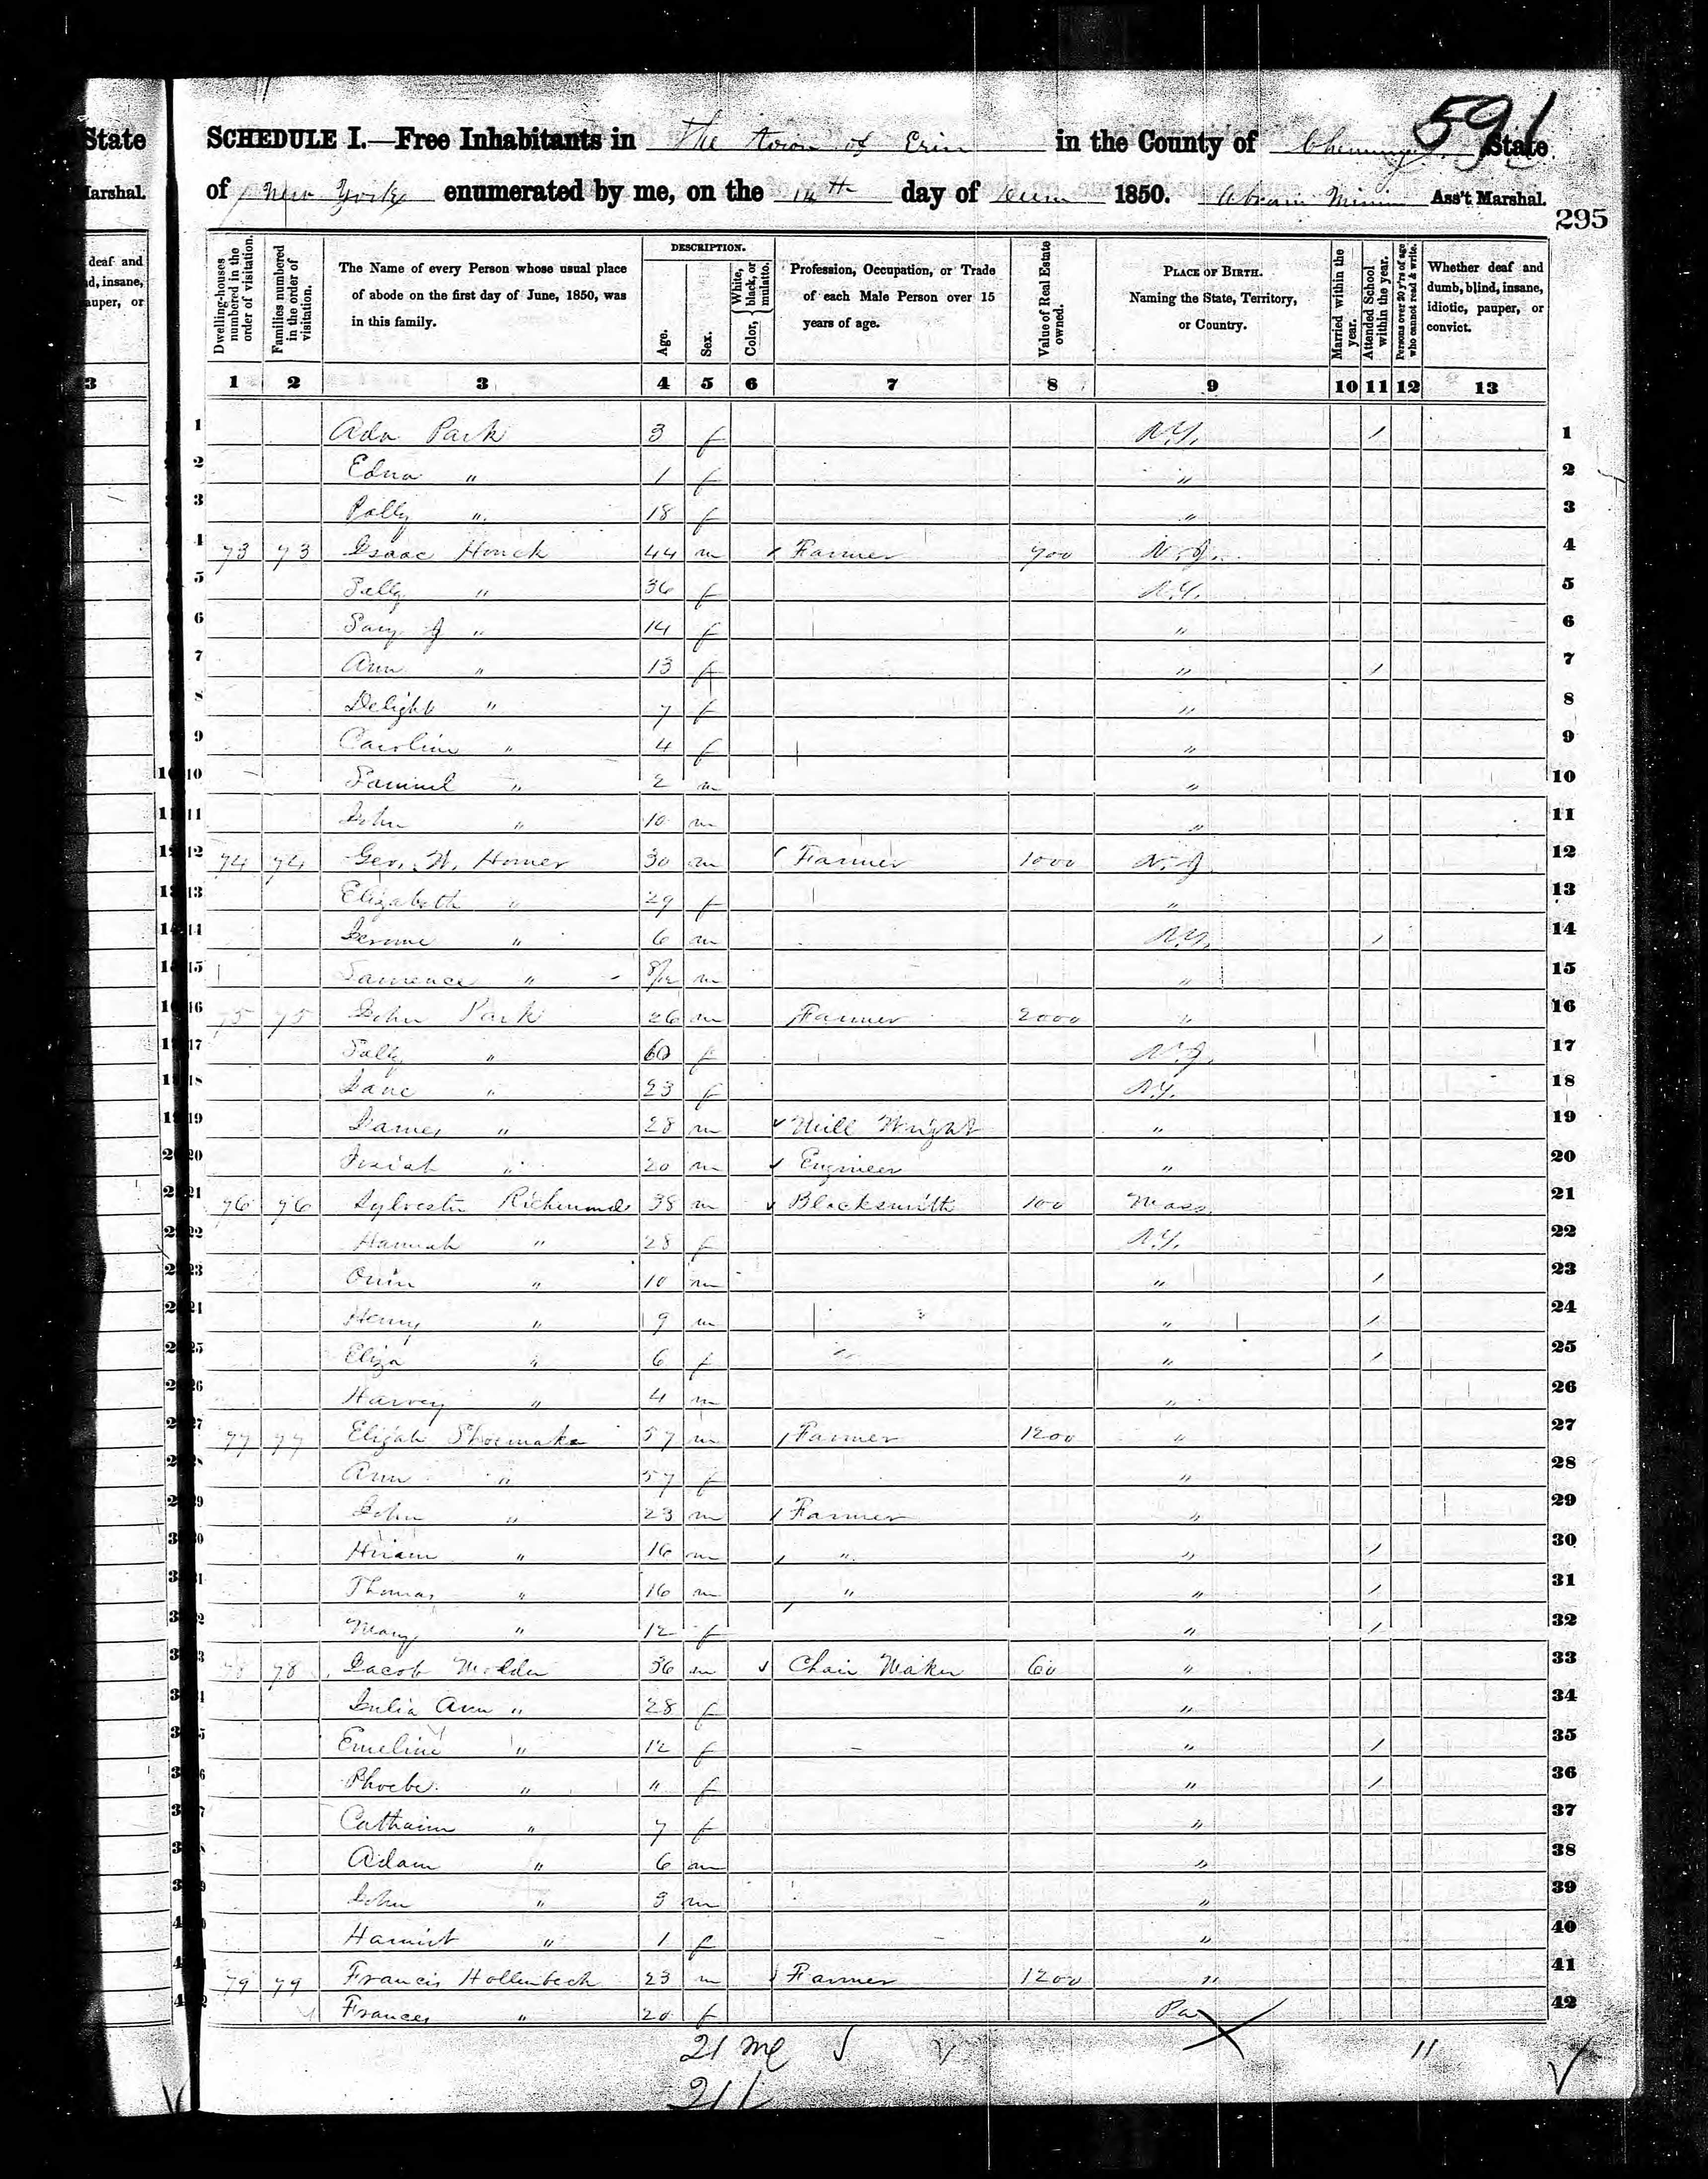 591
SCHEDULE I.—Free Inhabitants in The Town of Erin in the County of Chemung State
of New York enumerated by me, on the 14th day of 1850. Abram Ass't Marshal.
295
State
Marshal.
deaf and
d, insane,
auper, or
3
Dwelling-houses numbered in the order of visitation.
Families numbered in the order of visitation.
The Name of every Person whose usual place of abode on the first day of June, 1850, was in this family.
DESCRIPTION.
Age.
Sex.
Color, White, black, or mulatto.
Profession, Occupation, or Trade of each Male Person over 15 years of age.
Value of Real Estate owned.
PLACE OF BIRTH. Naming the State, Territory, or Country.
Married within the year.
Attended School within the year.
Persons over 20 y'rs of age who cannot read & write.
Whether deaf and dumb, blind, insane, idiotic, pauper, or convict.
1 2 3 4 5 6 7 8 9 10 11 12 13
1 Ada Park 3 f N.Y. / 1
2 Edna " 1 f " 2
3 Polly " 18 f " 3
4 73 73 Isaac Houck 44 m Farmer 900 N.J. 4
5 Sally " 36 f N.Y. 5
6 J " 14 f " 6
7 Ann " 13 f " / 7
8 Delight " 7 f " 8
9 Caroline " 4 f " 9
10 Samuel " 2 m " 10
11 John " 10 m " 11
12 74 74 Geo. W. Horner 30 m Farmer 1000 N.J. 12
13 Elizabeth " 29 f " 13
14 Jerome " 6 m N.Y. / 14
15 Lawrence " 8/12 m " 15
16 75 75 John Park 26 m Farmer 2000 " 16
17 Sally " 60 f N.J. 17
18 Jane " 23 f N.Y. 18
19 James " 28 m Mill Wright " 19
20 Josiah " 20 m Engineer " 20
21 76 76 Sylvester Richmond 38 m Blacksmith 100 Mass. 21
22 Hannah " 28 f N.Y. 22
23 Orrin " 10 m " / 23
24 Henry " 9 m " / 24
25 Eliza " 6 f " / 25
26 Harvey " 4 m " 26
27 77 77 Elijah Shoemake 57 m Farmer 1200 " 27
28 Ann " 57 f " 28
29 John " 23 m Farmer " 29
30 Hiram " 16 m " " / 30
31 Thomas " 16 m " " / 31
32 Mary " 12 f " / 32
33 78 78 Jacob 36 m Chair Maker 60 " 33
34 Julia Ann " 28 f " 34
35 Emeline " 12 f " / 35
36 Phoebe " " f " / 36
37 Catharine " 7 f " 37
38 Adam " 6 m " 38
39 John " 3 m " 39
40 Harriet " 1 f " 40
41 79 79 Francis Hollenbeck 23 m Farmer 1200 " 41
42 Frances " 20 f Pa 42
21 me 11
21 f